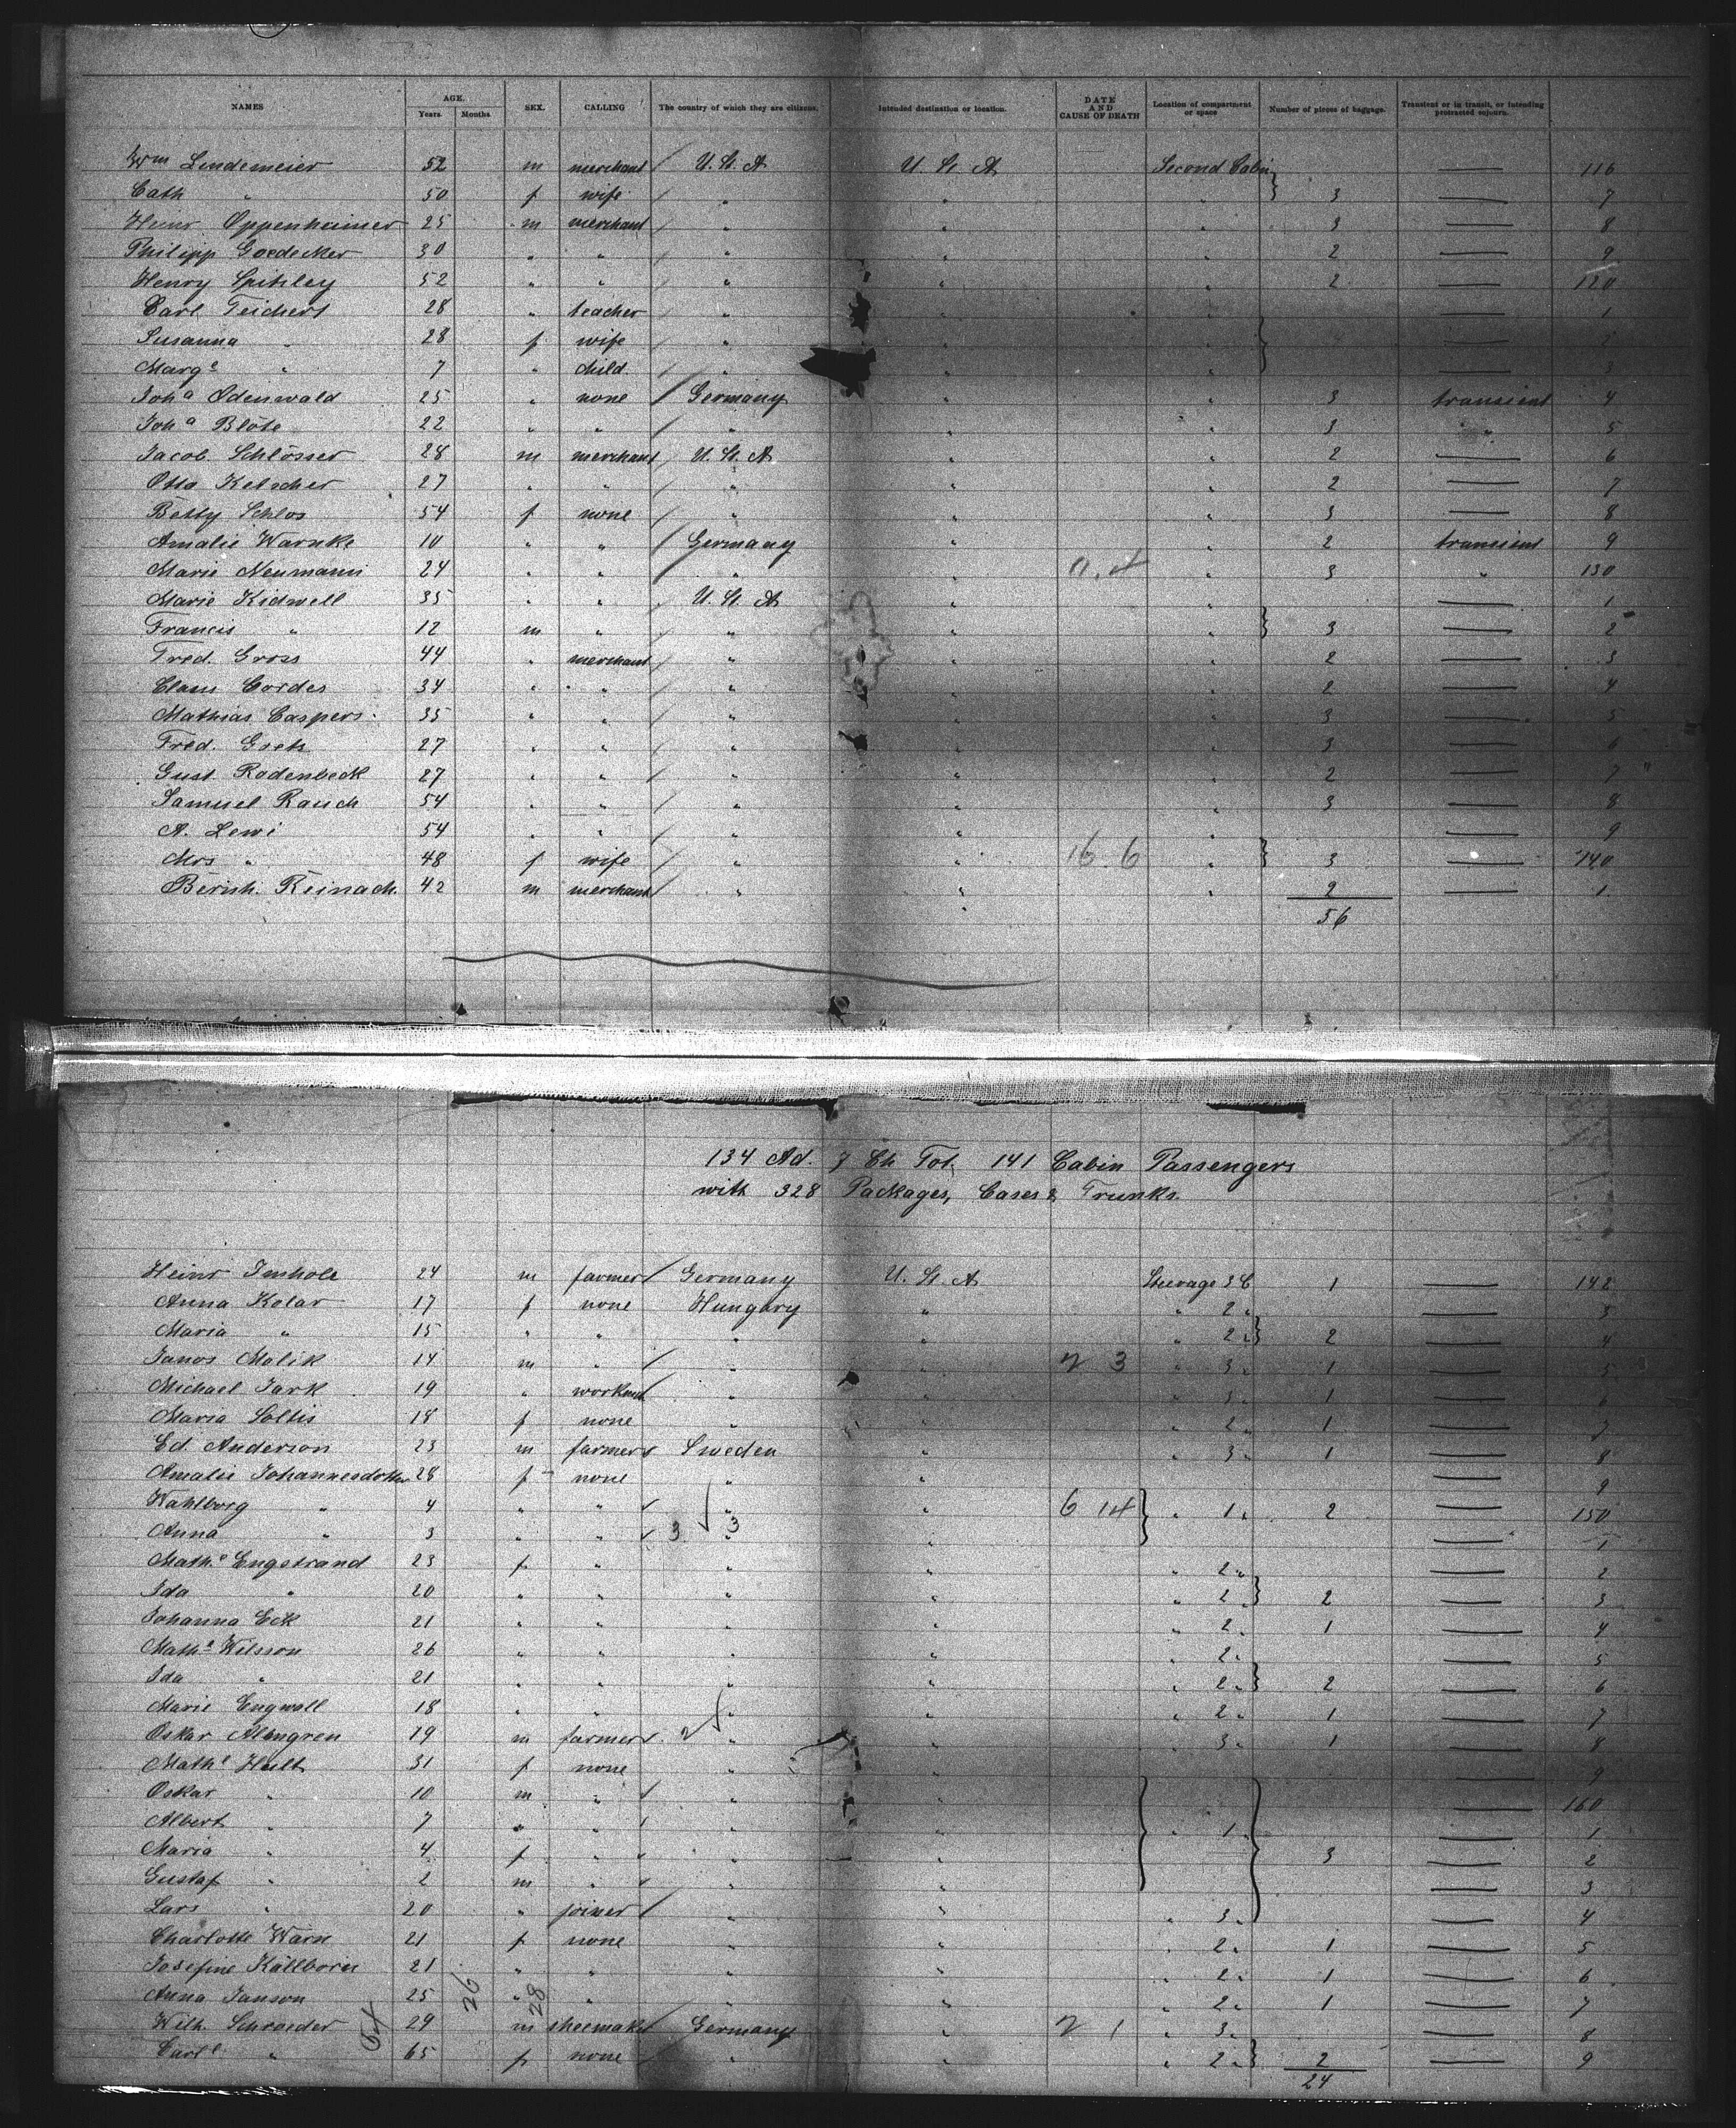 NAMES AGE. Years Months SEX. CALLING The country of which they are citizens. Intended destination or location. DATE AND CAUSE OF DEATH Location of compartment or space Number of pieces of baggage. Transient or in transit, or intending protracted sojourn.
Wm Lindemeier 52 m merchant / U. St. A U. St. A Second Cabin — 116
Cath " 50 f wife / " " " } 3 — 7
Heinr Oppenheimer 25 m merchant / " " " 3 — 8
Philipp Goedecker 30 " " / " " " 2 — 9
Henry Spitzley 52 " " / " " " 2 — 120
Carl Teichert 28 " teacher / " " " — 1
Susanna " 28 f wife / " " " } — 2
Marge " 7 " child / " " " — 3
Joha Odenwald 25 " none / Germany " " 3 transient 4
Joha Blöte 22 " " / " " " 3 " 5
Jacob Schlösser 28 m merchant / U. St. A " " 2 — 6
Otto Ketscher 27 " " / " " " 2 — 7
Betty Schlos 54 f none / " " " 3 — 8
Amalie Warnke 10 " " / Germany " " 2 transient 9
Marie Neumann 24 " " / " " " 3 " 130
Marie Kidwell 35 " " U. St. A " " — 1
Francis " 12 m " / " " " } 3 — 2
Fred. Gross 44 " merchant / " " " 2 — 3
Claus Cordes 34 " " / " " " 2 — 4
Mathias Caspers 35 " " / " " " 3 — 5
Fred. 27 " " / " " " 3 — 6
Gust. Rodenbeck 27 " " / " " " 2 — 7
Samuel Rauch 54 " " / " " " 3 — 8
A. Lewi 54 " " / " " " — 9
Mrs " 48 f wife / " " 16 6 " } 3 — 140
Berish. Reinach 42 m merchant / " " " 2 — 1
56
134 Ad. 7 Ch Tot. 141 Cabin Passengers
with 328 Packages, Cases & Trunks.
Heinr Imhole 24 m farmer / Germany U. St. A Steerage 3 C 1 — 142
Anna Kolar 17 f none Hungary " " 2 " — 3
Maria " 15 " " " " " 2 " } 2 — 4
Janos Malik 14 m " / " " 2 3 " 3 " 1 — 5
Michael Jark 19 " workm / " " " 3 " 1 — 6
Maria Soltis 18 f none " " " 2 " 1 — 7
Ed. Anderson 23 m farmer / Sweden " " 3 " 1 — 8
Amalie Johannesdotter 28 f none " " — 9
Wahlborg " 4 " " " " 6 14 } " 1 " 2 — 150
Anna " 3 " " 3 3 " — 1
Matha Engstrand 23 f " " " " 2 " — 2
Ida " 20 " " " " " 2 " } 2 — 3
Johanna Eck 21 " " " " " 2 " 1 — 4
Matha Wilsson 26 " " " " " 2 " — 5
Ida " 21 " " " " " 2 " } 2 — 6
Marie Engwall 18 " " " " " 2 " 1 — 7
Oskar Almgren 19 m farmer / 2 " " " 3 " 1 — 8
Mathe Hult 31 f none " " — 9
Oskar " 10 m " " " — 160
Albert " 7 " " " " " 1 " — 1
Maria " 4 f " " " 3 — 2
Gustaf " 2 m " " " — 3
Lars " 20 " joiner / " " " 3 " — 4
Charlotte Warn 21 f none " " " 2 " 1 — 5
Josefine Källborn 21 " " " " " 2 " 1 — 6
Anna Janson 25 " " " " " 2 " 1 — 7
Wilh. Schroeder 29 m shoemaker Germany " 2 1 " 3 " — 8
Carle " 65 f none " " " 2 " } 2 — 9
54 26 28
24